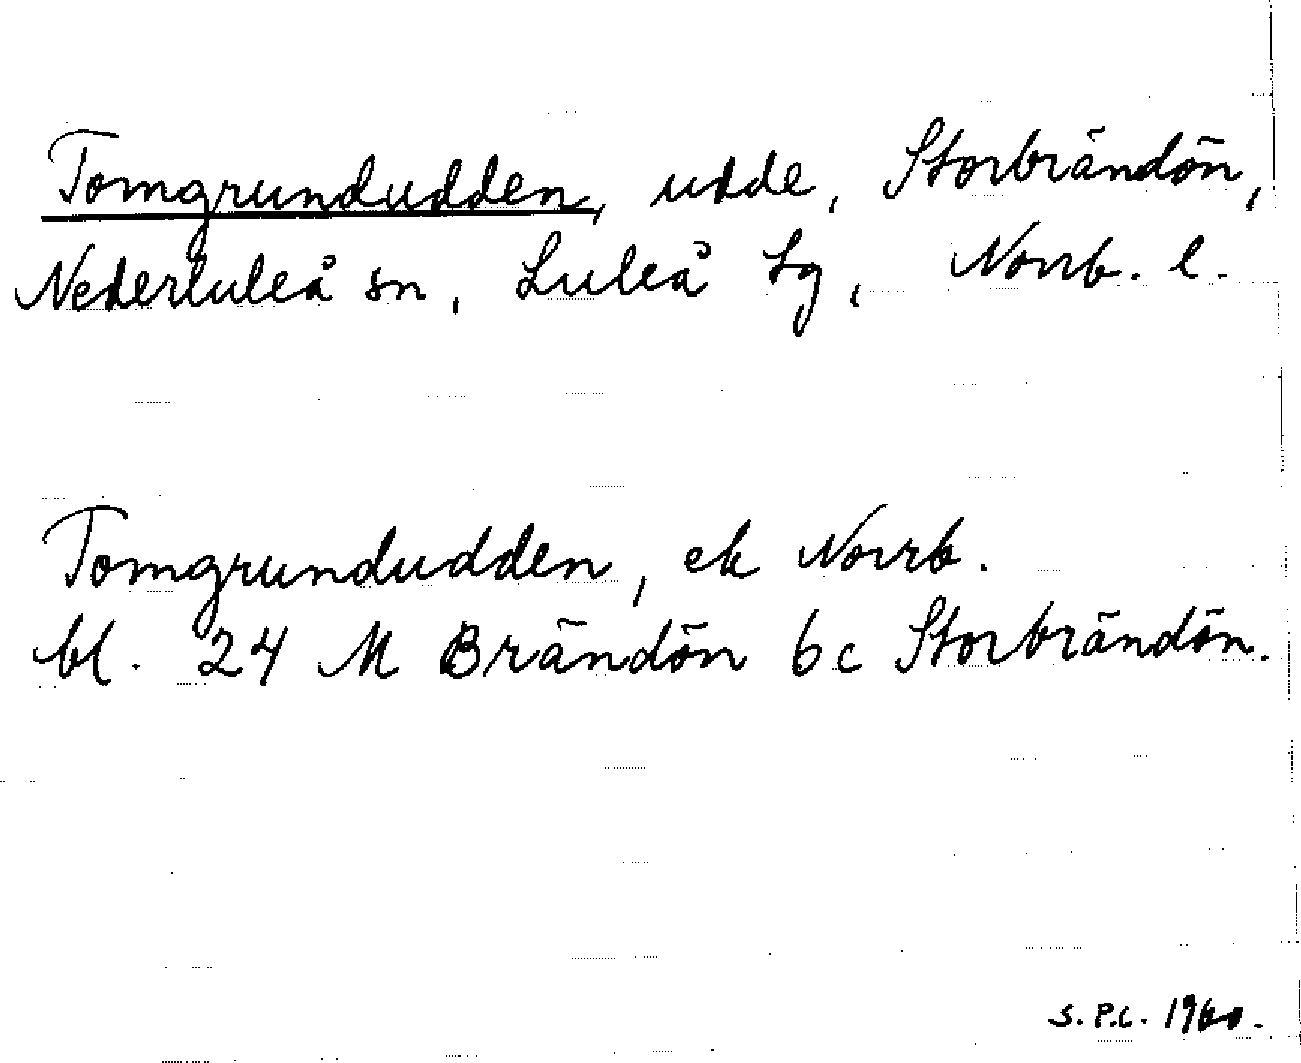 Tomgrundudden, udde, Storbrändön,
Nederluleå sn, Luleå tg, Norrb. l.
Tomgrundudden, ek Norrb.
bl. 24 M Brändön 6c Storbrändön.
S.P.C. 1960.